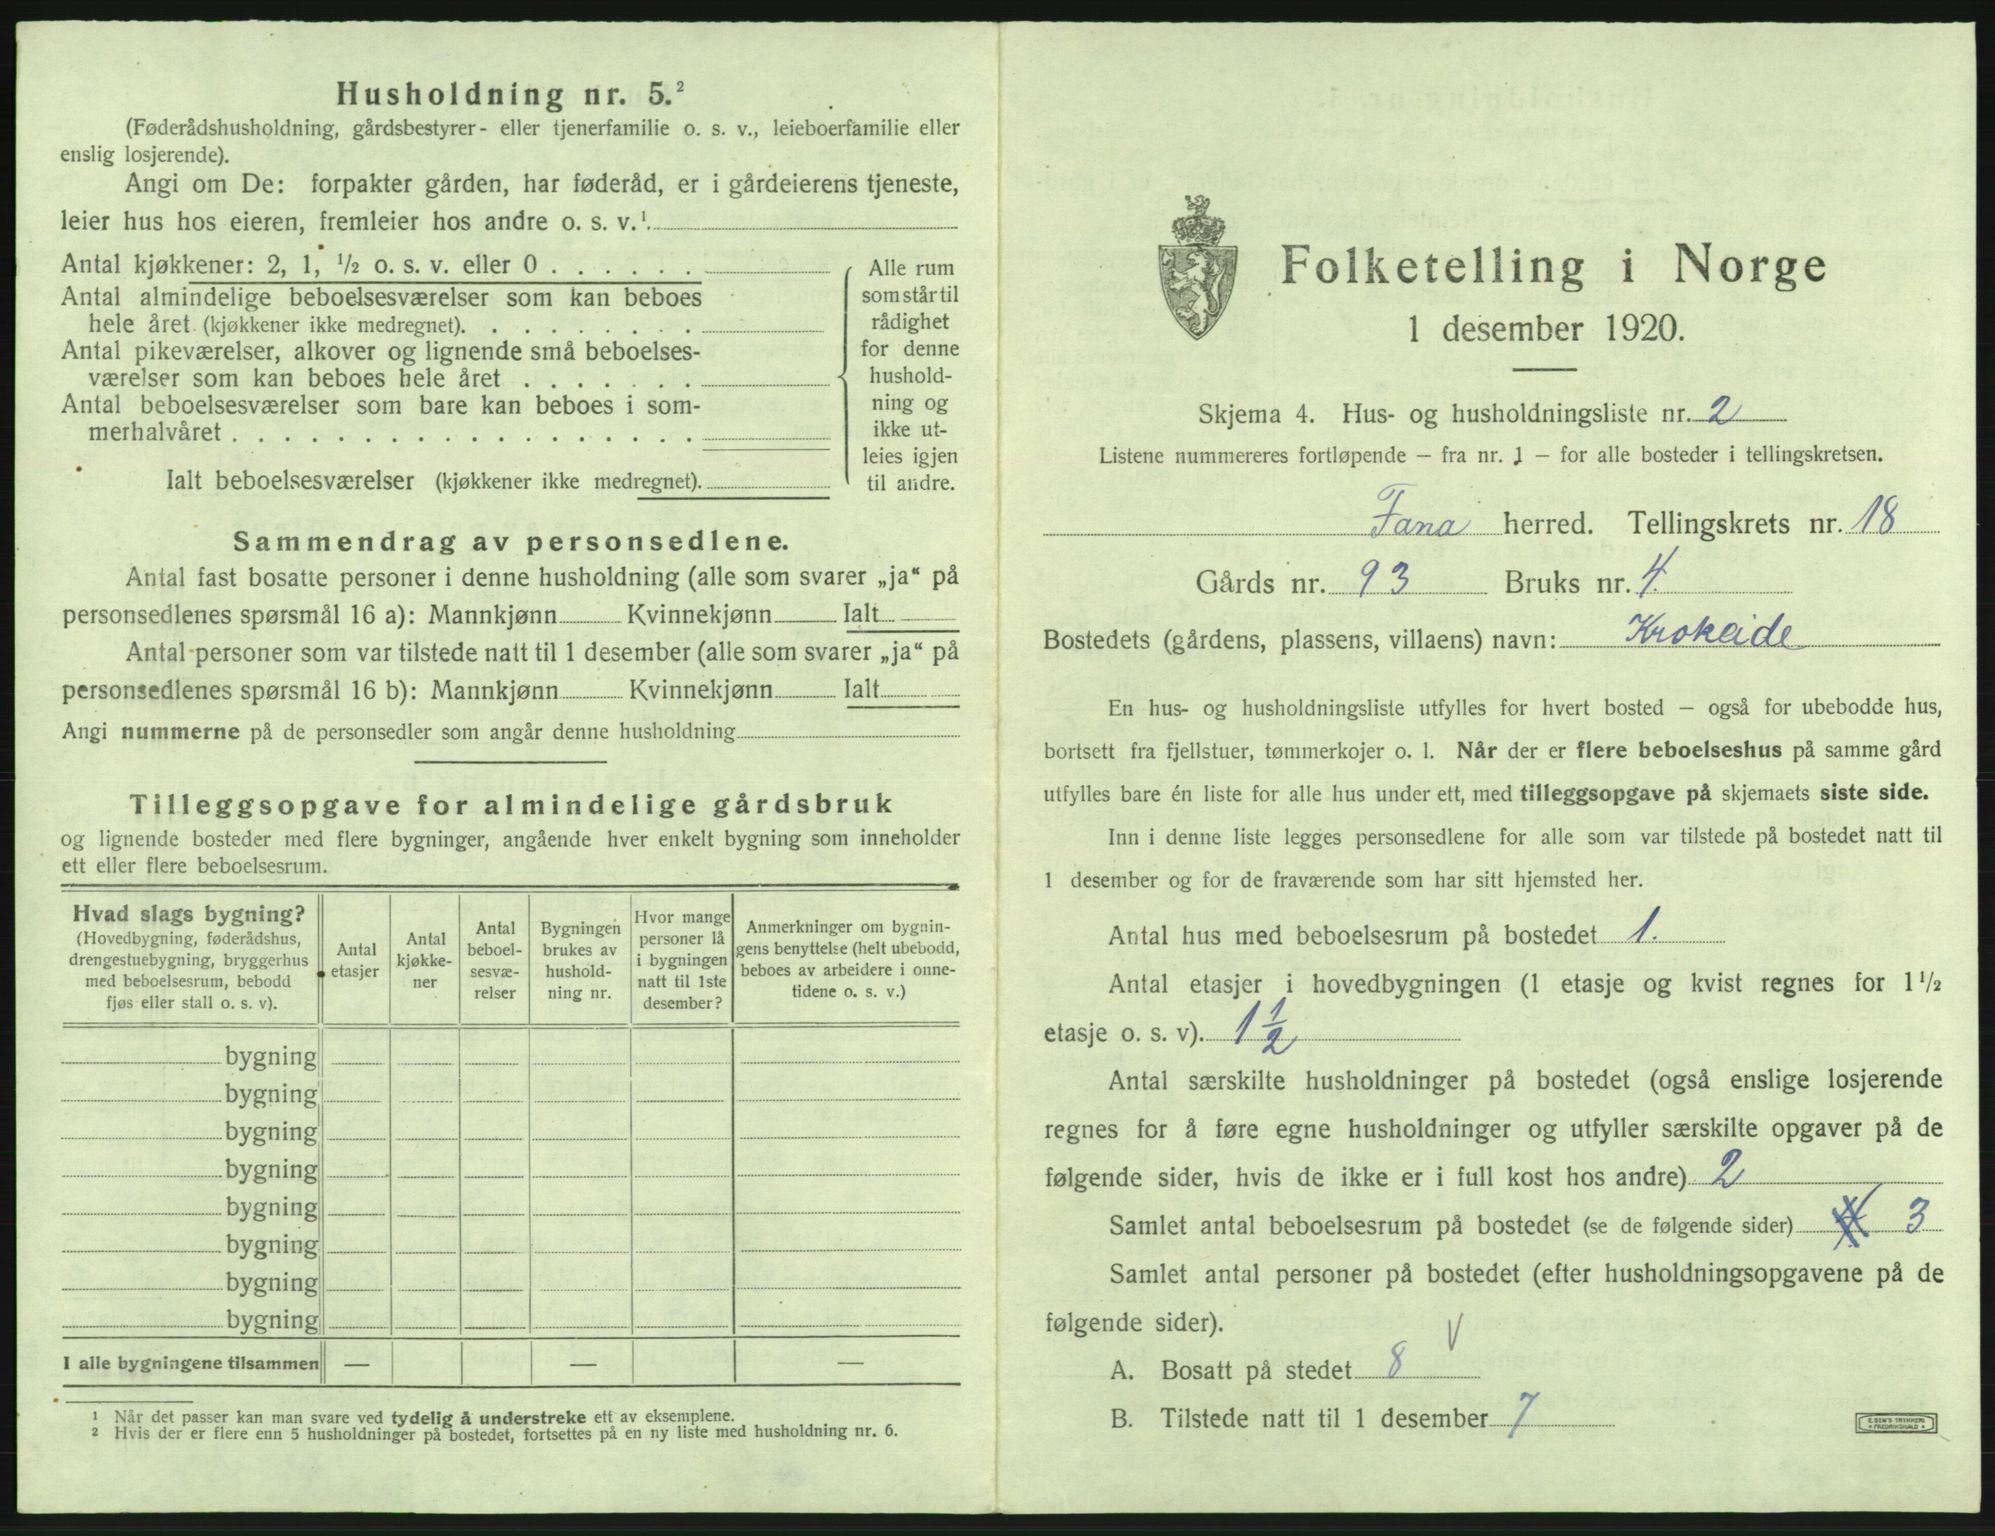 Husholdning nr. 5.²
(Føderådshusholdning, gårdsbestyrer- eller tjenerfamilie o. s. v., leieboerfamilie eller
enslig losjerende).
Angi om De: forpakter gården, har føderåd, er i gårdeierens tjeneste,
leier hus hos eieren, fremleier hos andre o. s. v.¹
Antal kjøkkener: 2, 1, ½ o. s. v. eller 0 . . . . . .
Antal almindelige beboelsesværelser som kan beboes
hele året (kjøkkener ikke medregnet). . . . . . . . .
Antal pikeværelser, alkover og lignende små beboelses-
værelser som kan beboes hele året . . . . . . .
Antal beboelsesværelser som bare kan beboes i som-
merhalvåret . . . . . . . . . . . . . . . . . .
Ialt beboelsesværelser (kjøkkener ikke medregnet).
Alle rum
som står til
rådighet
for denne
hushold-
ning og
ikke ut-
leies igjen
til andre.
Sammendrag av personsedlene.
Antal fast bosatte personer i denne husholdning (alle som svarer „ja“ på
personsedlenes spørsmål 16 a): Mannkjønn Kvinnekjønn Ialt
Antal personer som var tilstede natt til 1 desember (alle som svarer „ja“ på
personsedlenes spørsmål 16 b): Mannkjønn Kvinnekjønn Ialt
Angi nummerne på de personsedler som angår denne husholdning
Tilleggsopgave for almindelige gårdsbruk
og lignende bosteder med flere bygninger, angående hver enkelt bygning som inneholder
ett eller flere beboelsesrum.
Hvad slags bygning?
(Hovedbygning, føderådshus,
drengestuebygning, bryggerhus
med beboelsesrum, bebodd
fjøs eller stall o. s. v).
Antal
etasjer
Antal
kjøkke-
ner
Antal
beboel-
sesvæ-
relser
Bygningen
brukes av
hushold-
ning nr.
Hvor mange
personer lå
i bygningen
natt til 1ste
desember?
Anmerkninger om bygnin-
gens benyttelse (helt ubebodd,
beboes av arbeidere i onne-
tidene o. s. v.)
bygning
bygning
bygning
bygning
bygning
bygning
bygning
bygning
I alle bygningene tilsammen — — —
¹ Når det passer kan man svare ved tydelig å understreke ett av eksemplene.
² Hvis der er flere enn 5 husholdninger på bostedet, fortsettes på en ny liste med husholdning nr. 6.
Folketelling i Norge
1 desember 1920.
Skjema 4. Hus- og husholdningsliste nr. 2
Listene nummereres fortløpende – fra nr. 1 – for alle bosteder i tellingskretsen.
Fana herred. Tellingskrets nr. 18
Gårds nr. 93 Bruks nr. 4.
Bostedets (gårdens, plassens, villaens) navn: Krokeide
En hus- og husholdningsliste utfylles for hvert bosted – også for ubebodde hus,
bortsett fra fjellstuer, tømmerkojer o. l. Når der er flere beboelseshus på samme gård
utfylles bare én liste for alle hus under ett, med tilleggsopgave på skjemaets siste side.
Inn i denne liste legges personsedlene for alle som var tilstede på bostedet natt til
1 desember og for de fraværende som har sitt hjemsted her.
Antal hus med beboelsesrum på bostedet 1.
Antal etasjer i hovedbygningen (1 etasje og kvist regnes for 1½
etasje o. s. v). 1½
Antal særskilte husholdninger på bostedet (også enslige losjerende
regnes for å føre egne husholdninger og utfyller særskilte opgaver på de
følgende sider, hvis de ikke er i full kost hos andre) 2
Samlet antal beboelsesrum på bostedet (se de følgende sider) 3
Samlet antal personer på bostedet (efter husholdningsopgavene på de
følgende sider).
A. Bosatt på stedet 8
B. Tilstede natt til 1 desember 7